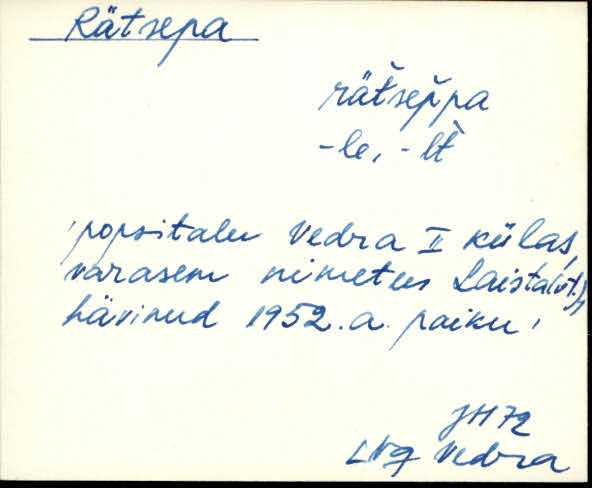 Rätsepa
rät̆sep̆pa
-le, -lt̆
'popsitalu Vedra II külas,
varasem nimetus Laista (vt.),
hävinud 1952.a. paiku'
JH 72
LNg Vedra